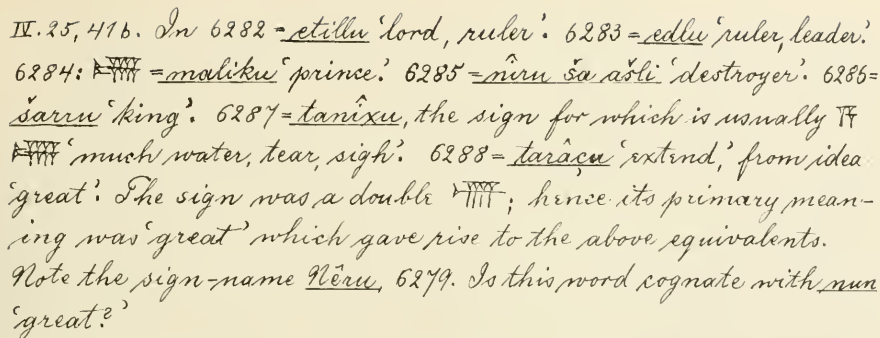 IV. 25, 41 b. In 6282 = etillu 'lord, ruler'. 6283 = edlu 'ruler, leader'.
6284: = maliku 'prince'. 6285 = nîru ša ašli 'destroyer'. 6286 =
šarru 'king'. 6287 = tanîxu, the sign for which is usually
'much water, tear, sigh'. 6288 = tarâçu 'extend,' from idea
'great'. The sign was a double ; hence its primary mean-
ing was 'great' which gave rise to the above equivalents.
Note the sign-name Nêru, 6279. Is this word cognate with nun
'great?'